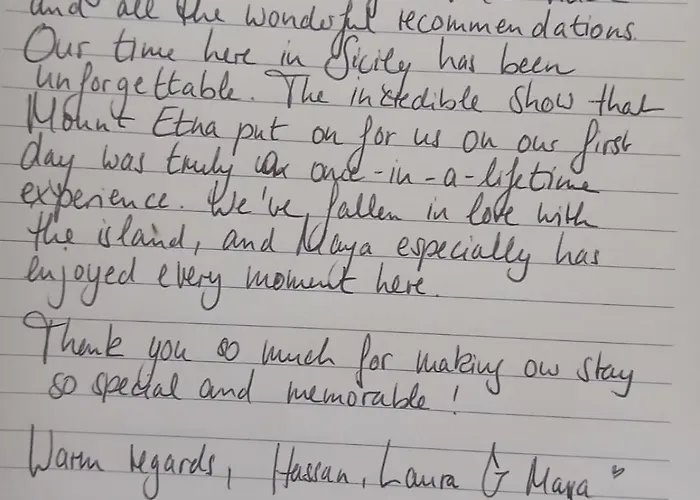 and all the wonderful recommendations.
Our time here in Sicily has been
unforgettable. The incredible show that
Mount Etna put on for us on our first
day was truly a once-in-a-lifetime
experience. We've fallen in love with
the island, and Maya especially has
enjoyed every moment here.
Thank you so much for making our stay
so special and memorable!
Warm regards, Hassan, Laura & Maya